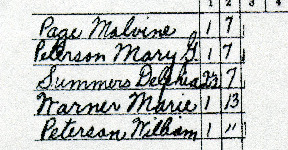 1 2 3 4
Page Malvine 1 7
Peterson Mary G. 1 7
Summers Delphia 23 7
Warner Marie 1 13
Peterson William 1 "